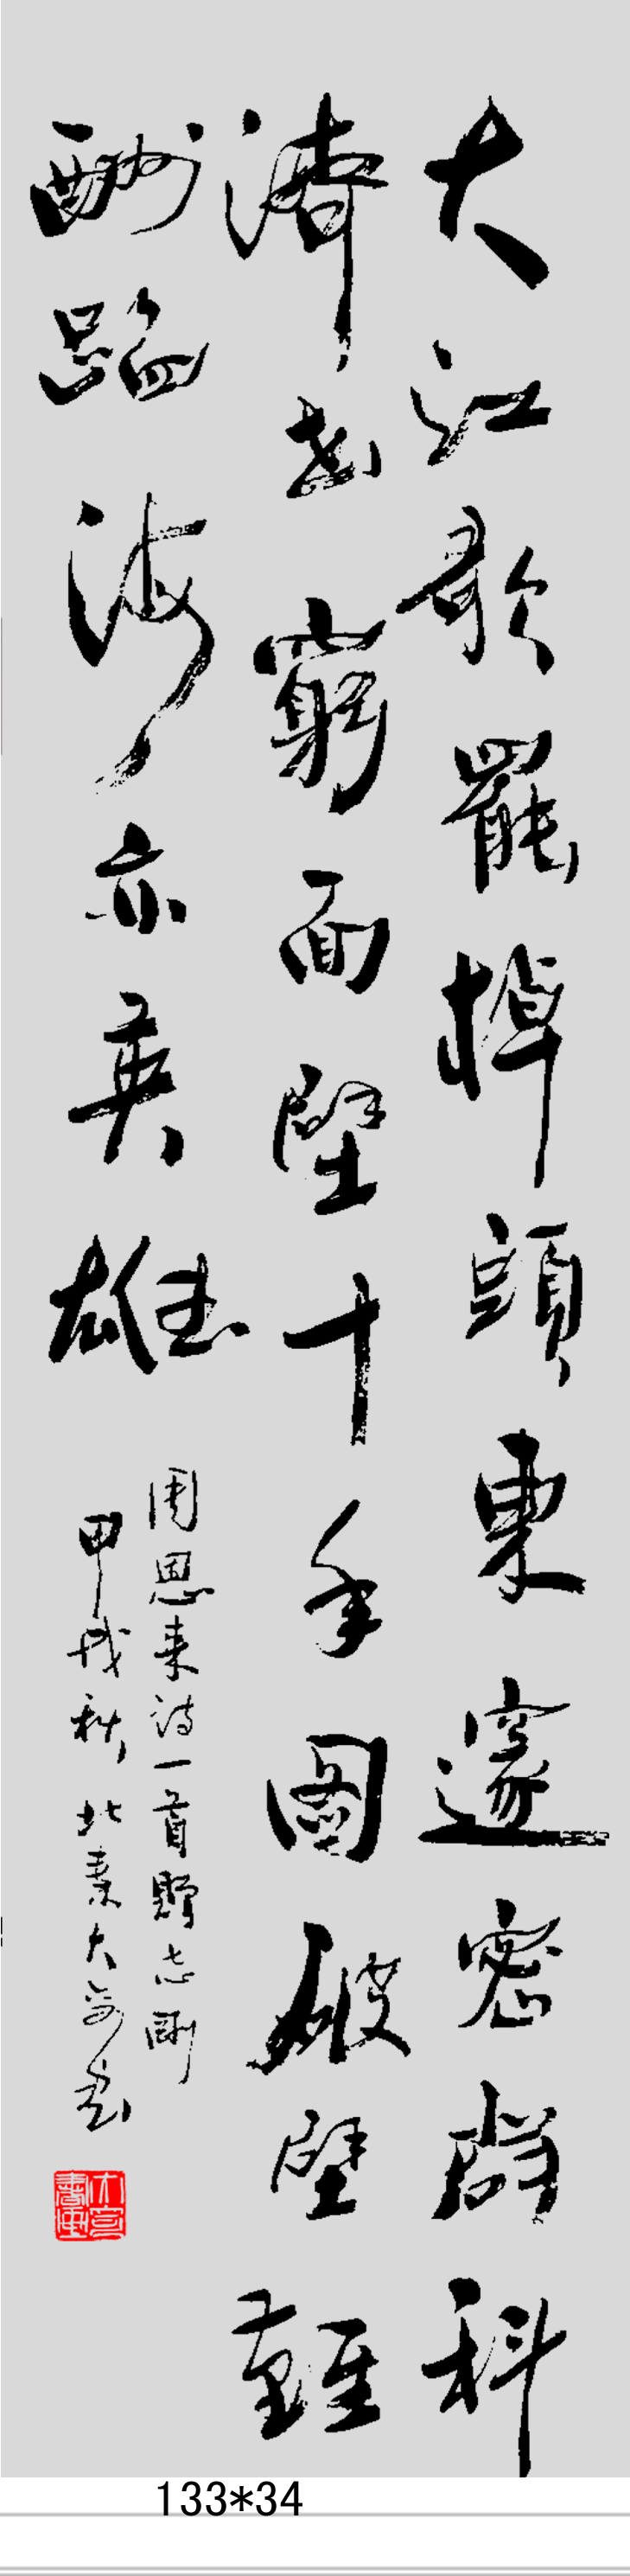 大江歌罷掉頭東邃密群科
濟世窮面壁十年圖破壁難
酬蹈海亦英雄
周恩来诗一首贈志剛
甲戌秋北秦大
133*34